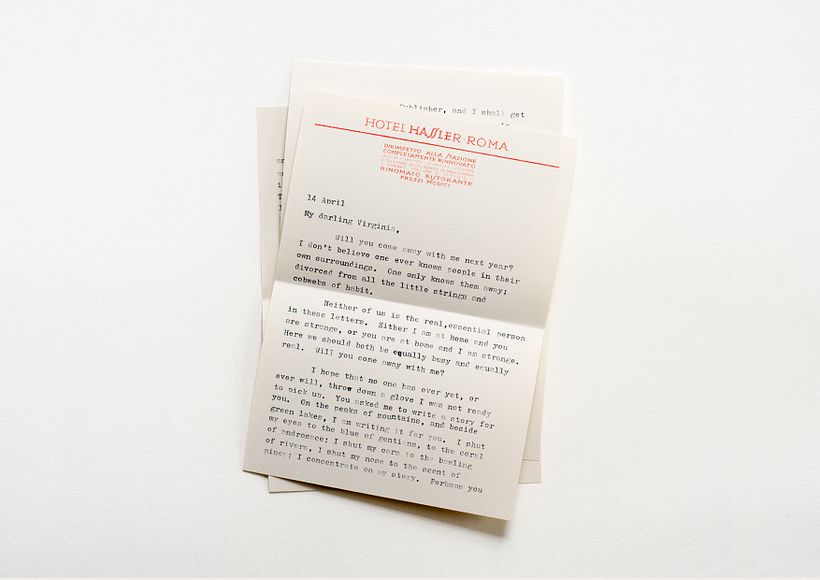 Publisher, and I shall get
HOTEL HASSLER-ROMA
DIRIMPETTO ALLA STAZIONE
COMPLETAMENTE RINNOVATO
RINOMATO RISTORANTE
PREZZI MODICI
14 April
My darling Virginia,
Will you come away with me next year?
I don't believe one ever knows people in their
own surroundings. One only knows them away;
divorced from all the little strings and
cobwebs of habit.
Neither of us is the real, essential person
in these letters. Either I am at home and you
are strange, or you are at home and I am strange.
Here we should both be equally busy and equally
real. Will you come away with me?
I hope that no one has ever yet, or
ever will, throw down a glove I was not ready
to pick up. You asked me to write a story for
you. On the peaks of mountains, and beside
green lakes, I am writing it for you. I shut
my eyes to the blue of gentians, to the coral
of androsace; I shut my ears to the bawling
of rivers, I shut my nose to the scent of
pines; I concentrate on my story. Perhaps you